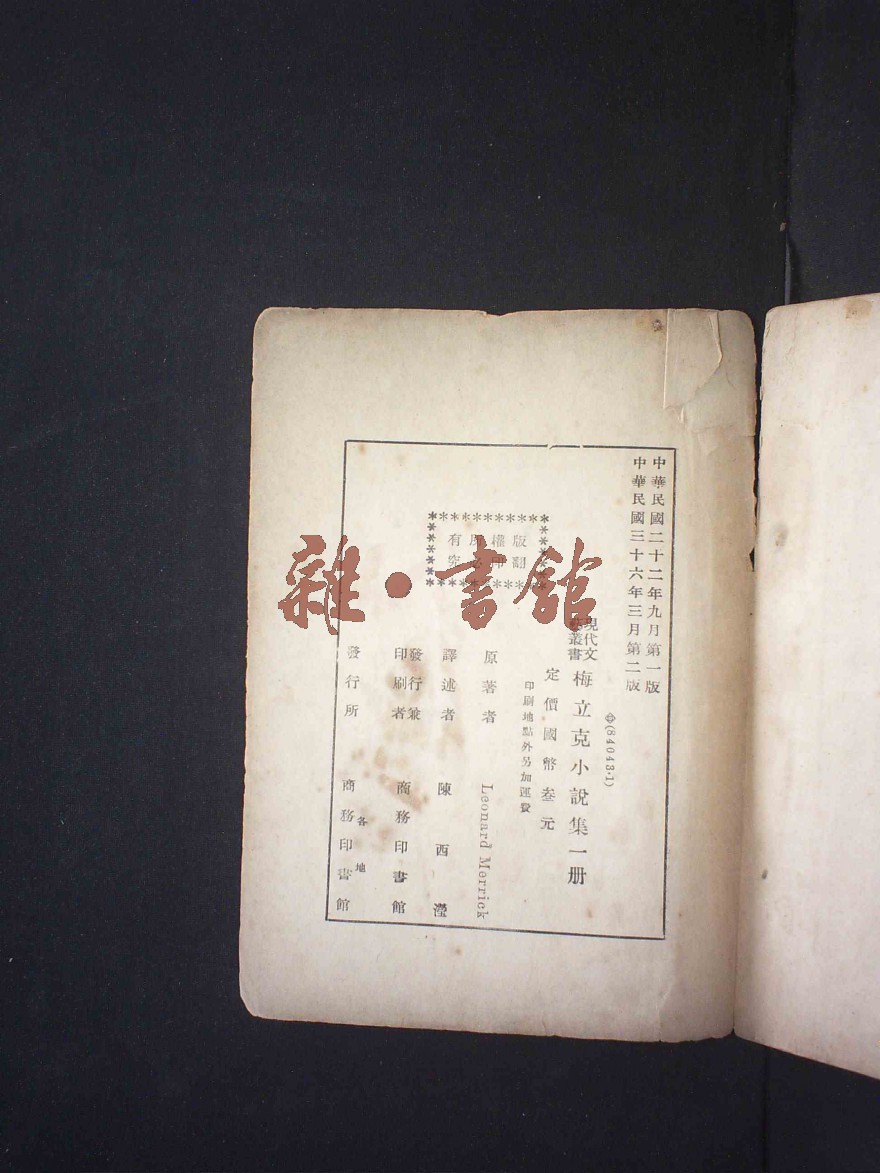 中華民國二十二年九月第一版
中華民國三十六年三月第二版
(84043·1)
現代文
藝叢書
梅立克小說集一册
定價國幣叁元
印刷地點外另加運費
版權所有
翻印必究
原著者 Leonard Merrick
譯述者 陳西瀅
發行兼
印刷者 商務印書館
各地
發行所 商務印書館
雜·書館